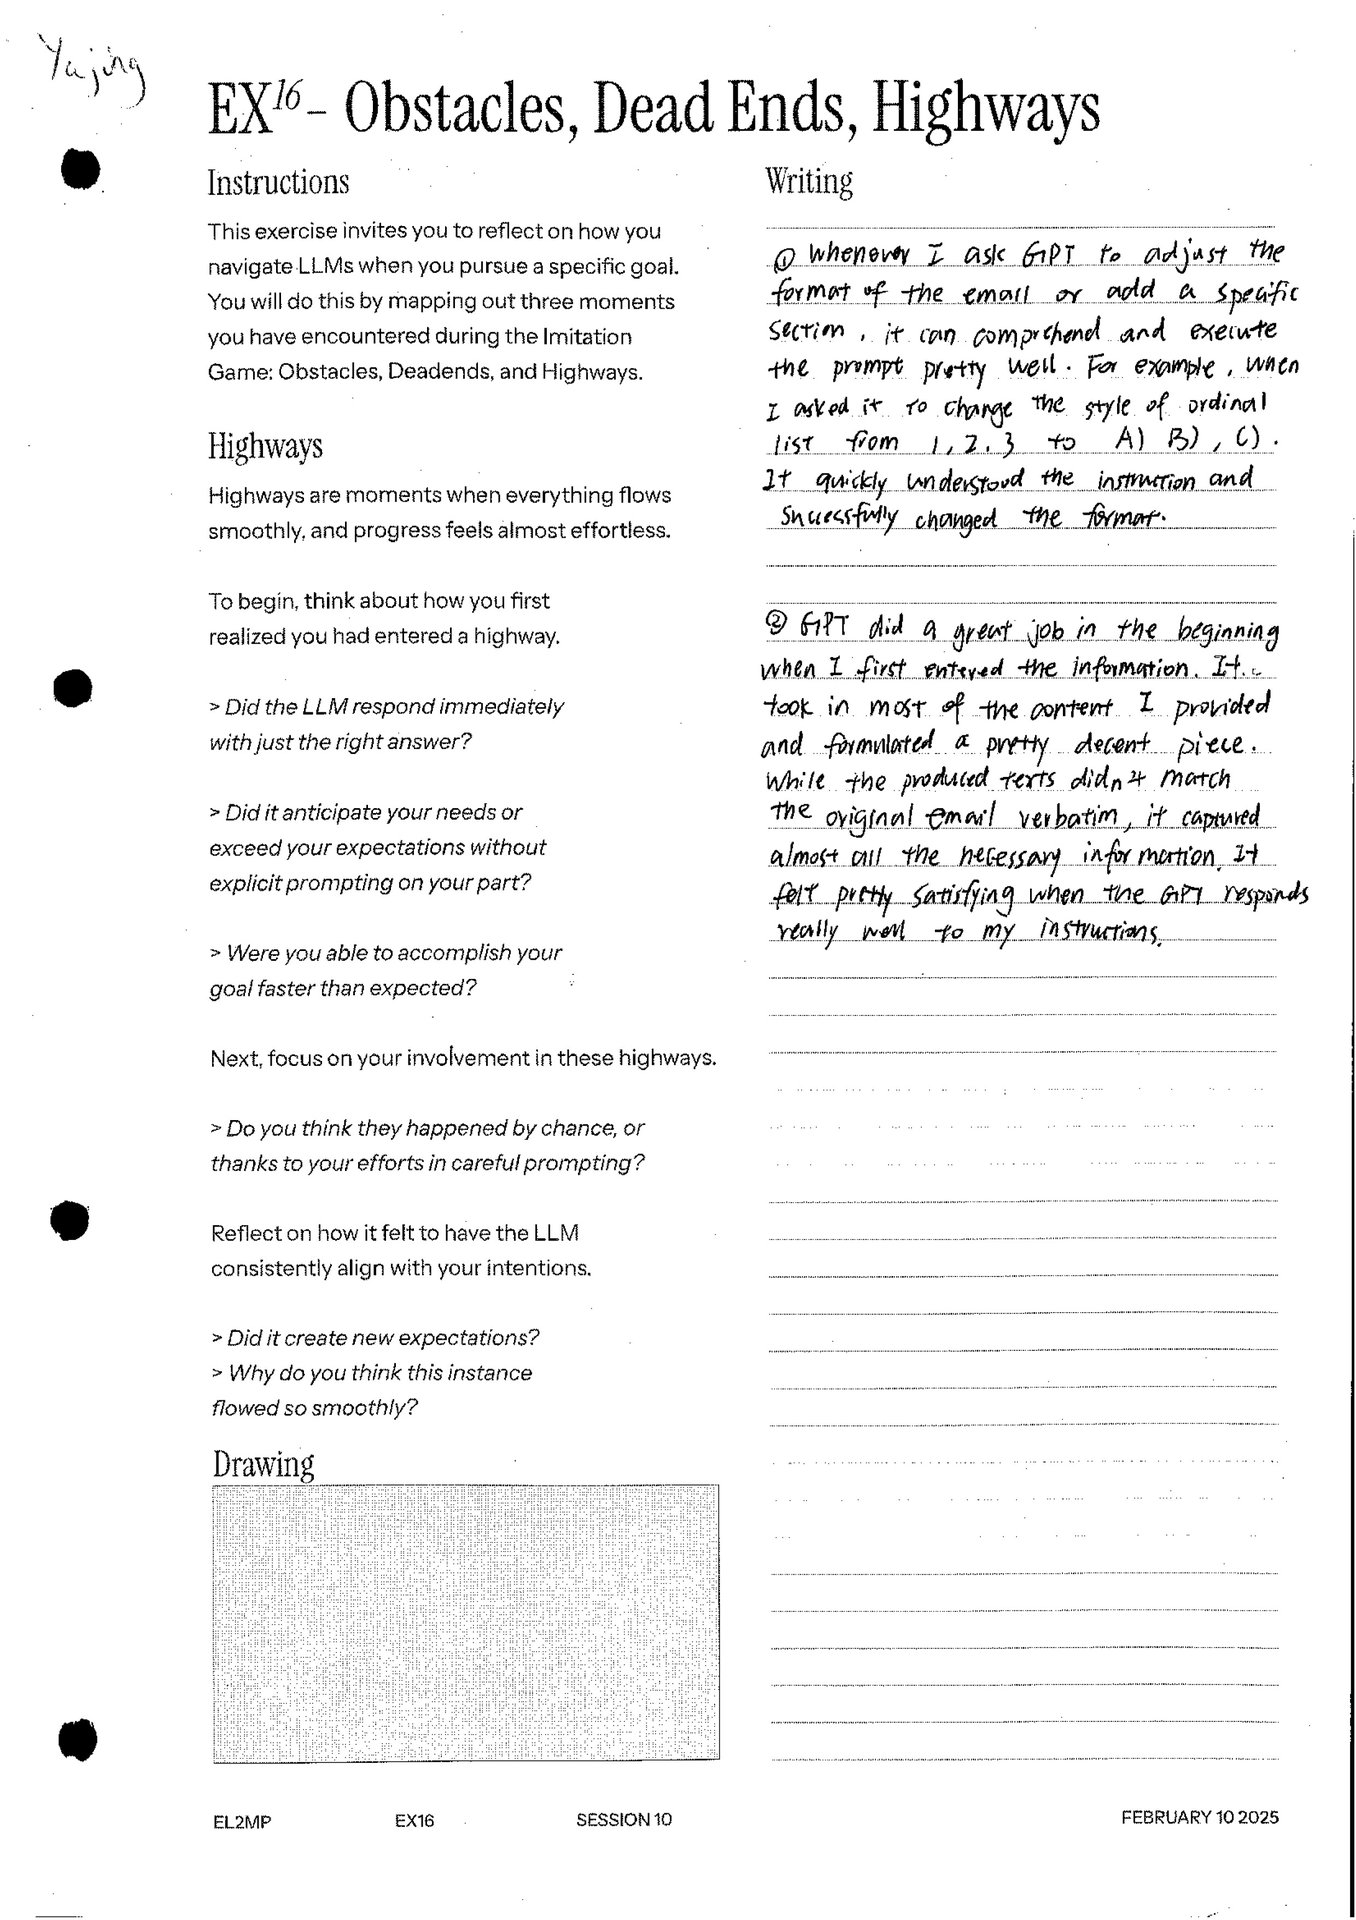 Yajing
EX16 - Obstacles, Dead Ends, Highways
Instructions
This exercise invites you to reflect on how you
navigate LLMs when you pursue a specific goal.
You will do this by mapping out three moments
you have encountered during the Imitation
Game: Obstacles, Deadends, and Highways.
Highways
Highways are moments when everything flows
smoothly, and progress feels almost effortless.
To begin, think about how you first
realized you had entered a highway.
> Did the LLM respond immediately
with just the right answer?
> Did it anticipate your needs or
exceed your expectations without
explicit prompting on your part?
> Were you able to accomplish your
goal faster than expected?
Next, focus on your involvement in these highways.
> Do you think they happened by chance, or
thanks to your efforts in careful prompting?
Reflect on how it felt to have the LLM
consistently align with your intentions.
> Did it create new expectations?
> Why do you think this instance
flowed so smoothly?
Drawing
Writing
① Whenever I ask GPT to adjust the
format of the email or add a specific
section, it can comprehend and execute
the prompt pretty well. For example, when
I asked it to change the style of ordinal
list from 1, 2. 3 to A) B), C).
It quickly understood the instruction and
successfully changed the format.
② GPT did a great job in the beginning
when I first entered the information. It
took in most of the content I provided
and formulated a pretty decent piece.
While the produced texts didn't match
the original email verbatim, it captured
almost all the necessary information. It
felt pretty satisfying when the GPT responds
really well to my instructions.
EL2MP EX16 SESSION 10 FEBRUARY 10 2025